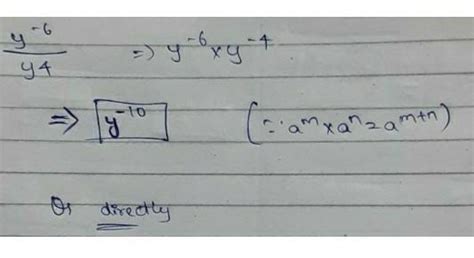 y⁻⁶/y4 => y⁻⁶ x y⁻⁴
=> y⁻¹⁰ (∵ aᵐ x aⁿ = aᵐ⁺ⁿ)
Or directly